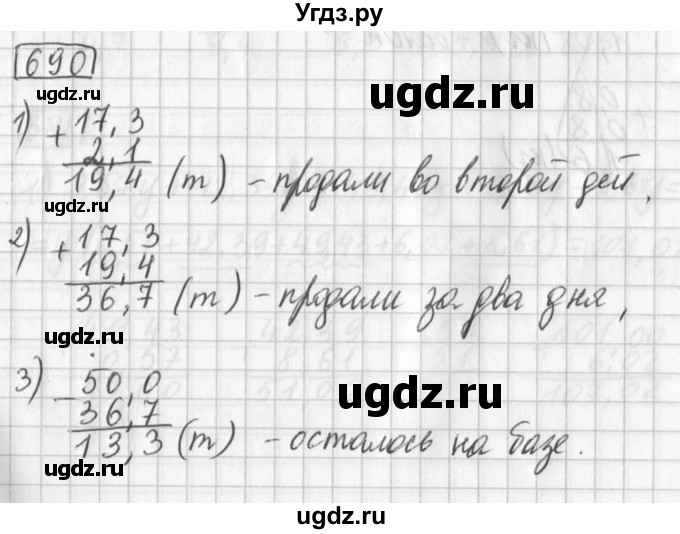 Угдз.ру
690
ugdz.ru
ugdz.ru
1) + 17,3
2,1
19,4 (т) - продали во второй дей,
ugdz.ru
2) + 17,3
19,4
36,7 (т) - продали за два дня,
ugdz.ru
ugdz.ru
3) - 50,0
36,7
13,3 (т) - осталось на базе.
ugdz.ru
ugdz.ru
ugdz.ru